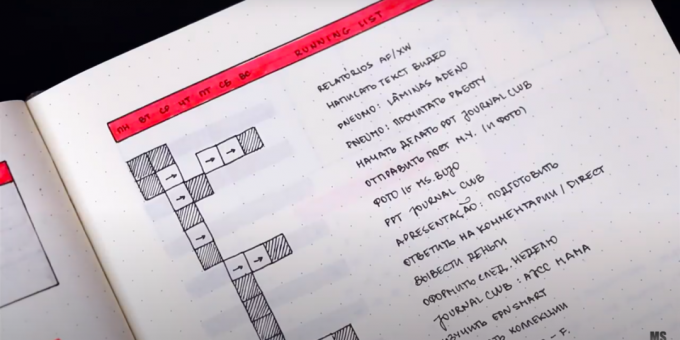 ПН ВТ СР ЧТ ПТ СБ ВС RUNNING LIST
RELATÓRIOS AP/XW
НАПИСАТЬ ТЕКСТ ВИДЕО
PNEUMO: LÂMINAS ADENO
PNEUMO: ПРОЧИТАТЬ РАБОТУ
НАЧАТЬ ДЕЛАТЬ PPT JOURNAL CLUB
ОТПРАВИТЬ ПОСТ M.Y. (И ФОТО)
ФОТО IG MS.BUJO
PPT JOURNAL CLUB
APRESENTAÇÃO: ПОДГОТОВИТЬ
ОТВЕТИТЬ НА КОММЕНТАРИИ / DIRECT
ВЫВЕСТИ ДЕНЬГИ
ОФОРМИТЬ СЛЕД. НЕДЕЛЮ
JOURNAL CLUB: МАМА
ИЗУЧИТЬ EPN SMART
КОЛЛЕКЦИИ
– F.
MS